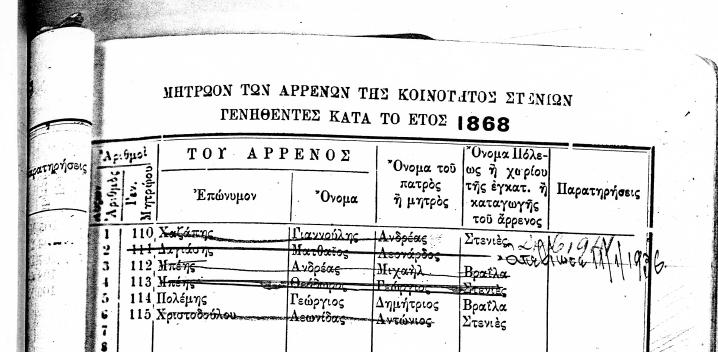 ΜΗΤΡΩΟΝ ΤΩΝ ΑΡΡΕΝΩΝ ΤΗΣ ΚΟΙΝΟΤΗΤΟΣ ΣΤΕΝΙΩΝ
ΓΕΝΗΘΕΝΤΕΣ ΚΑΤΑ ΤΟ ΕΤΟΣ 1868
παρατηρήσεις
Ἀριθμοὶ
Ἀριθμὸς
Γεν. Μητρώου
ΤΟΥ ΑΡΡΕΝΟΣ
Ἐπώνυμον
Ὄνομα
Ὄνομα τοῦ
πατρὸς
ἢ μητρὸς
Ὄνομα Πόλε-
ως ἢ χωρίου
τῆς ἐγκατ. ἢ
καταγωγῆς
τοῦ ἄρρενος
Παρατηρήσεις
1 110 Χαζάπης Γιαννούλης Ἀνδρέας Στενιὲς
2 111 Ματθαῖος Λεονάρδος
3 112 Μπέης Ἀνδρέας Μιχαὴλ Βραΐλα
4 113 Μπέης Θεόδωρος Γεώργιος Στενιὲς
5 114 Πολέμης Γεώργιος Δημήτριος Βραΐλα
6 115 Χριστοδούλου Λεωνίδας Ἀντώνιος Στενιὲς
7
8